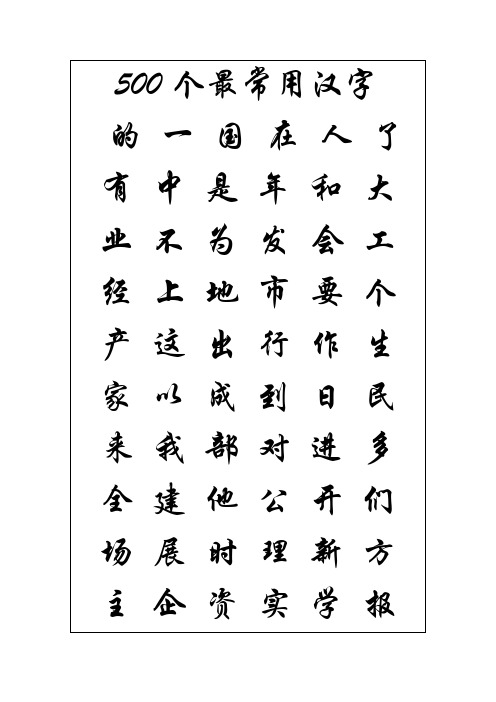 500个最常用汉字
的 一 国 在 人 了
有 中 是 年 和 大
业 不 为 发 会 工
经 上 地 市 要 个
产 这 出 行 作 生
家 以 成 到 日 民
来 我 部 对 进 多
全 建 他 公 开 们
场 展 时 理 新 方
主 企 资 实 学 报